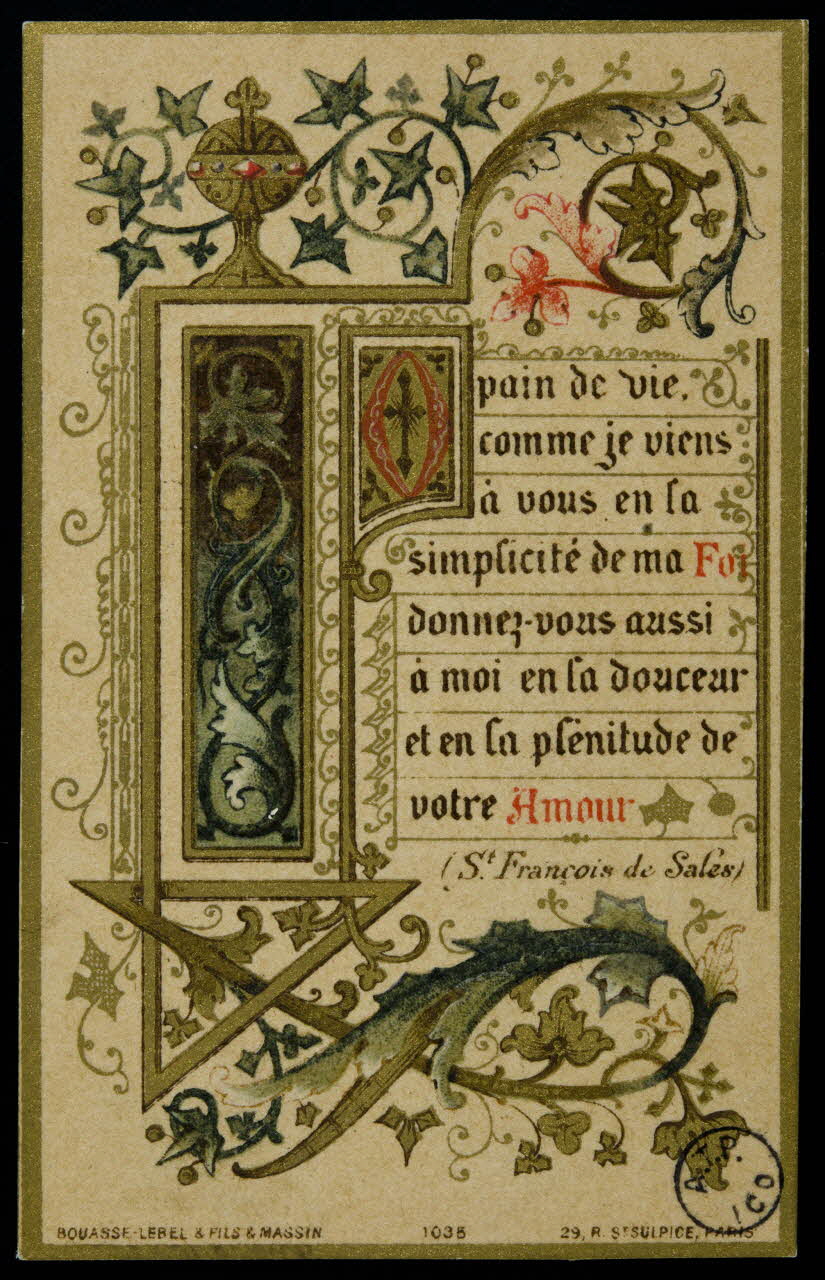 O pain de vie,
comme je viens
à vous en la
simplicité de ma Foi
donnez-vous aussi
à moi en la douceur
et en la plénitude de
votre Amour
(St François de Sales)
BOUASSE-LEBEL & FILS & MASSIN 1035 29, R. St SULPICE, PARIS
A.T.P.
ICO